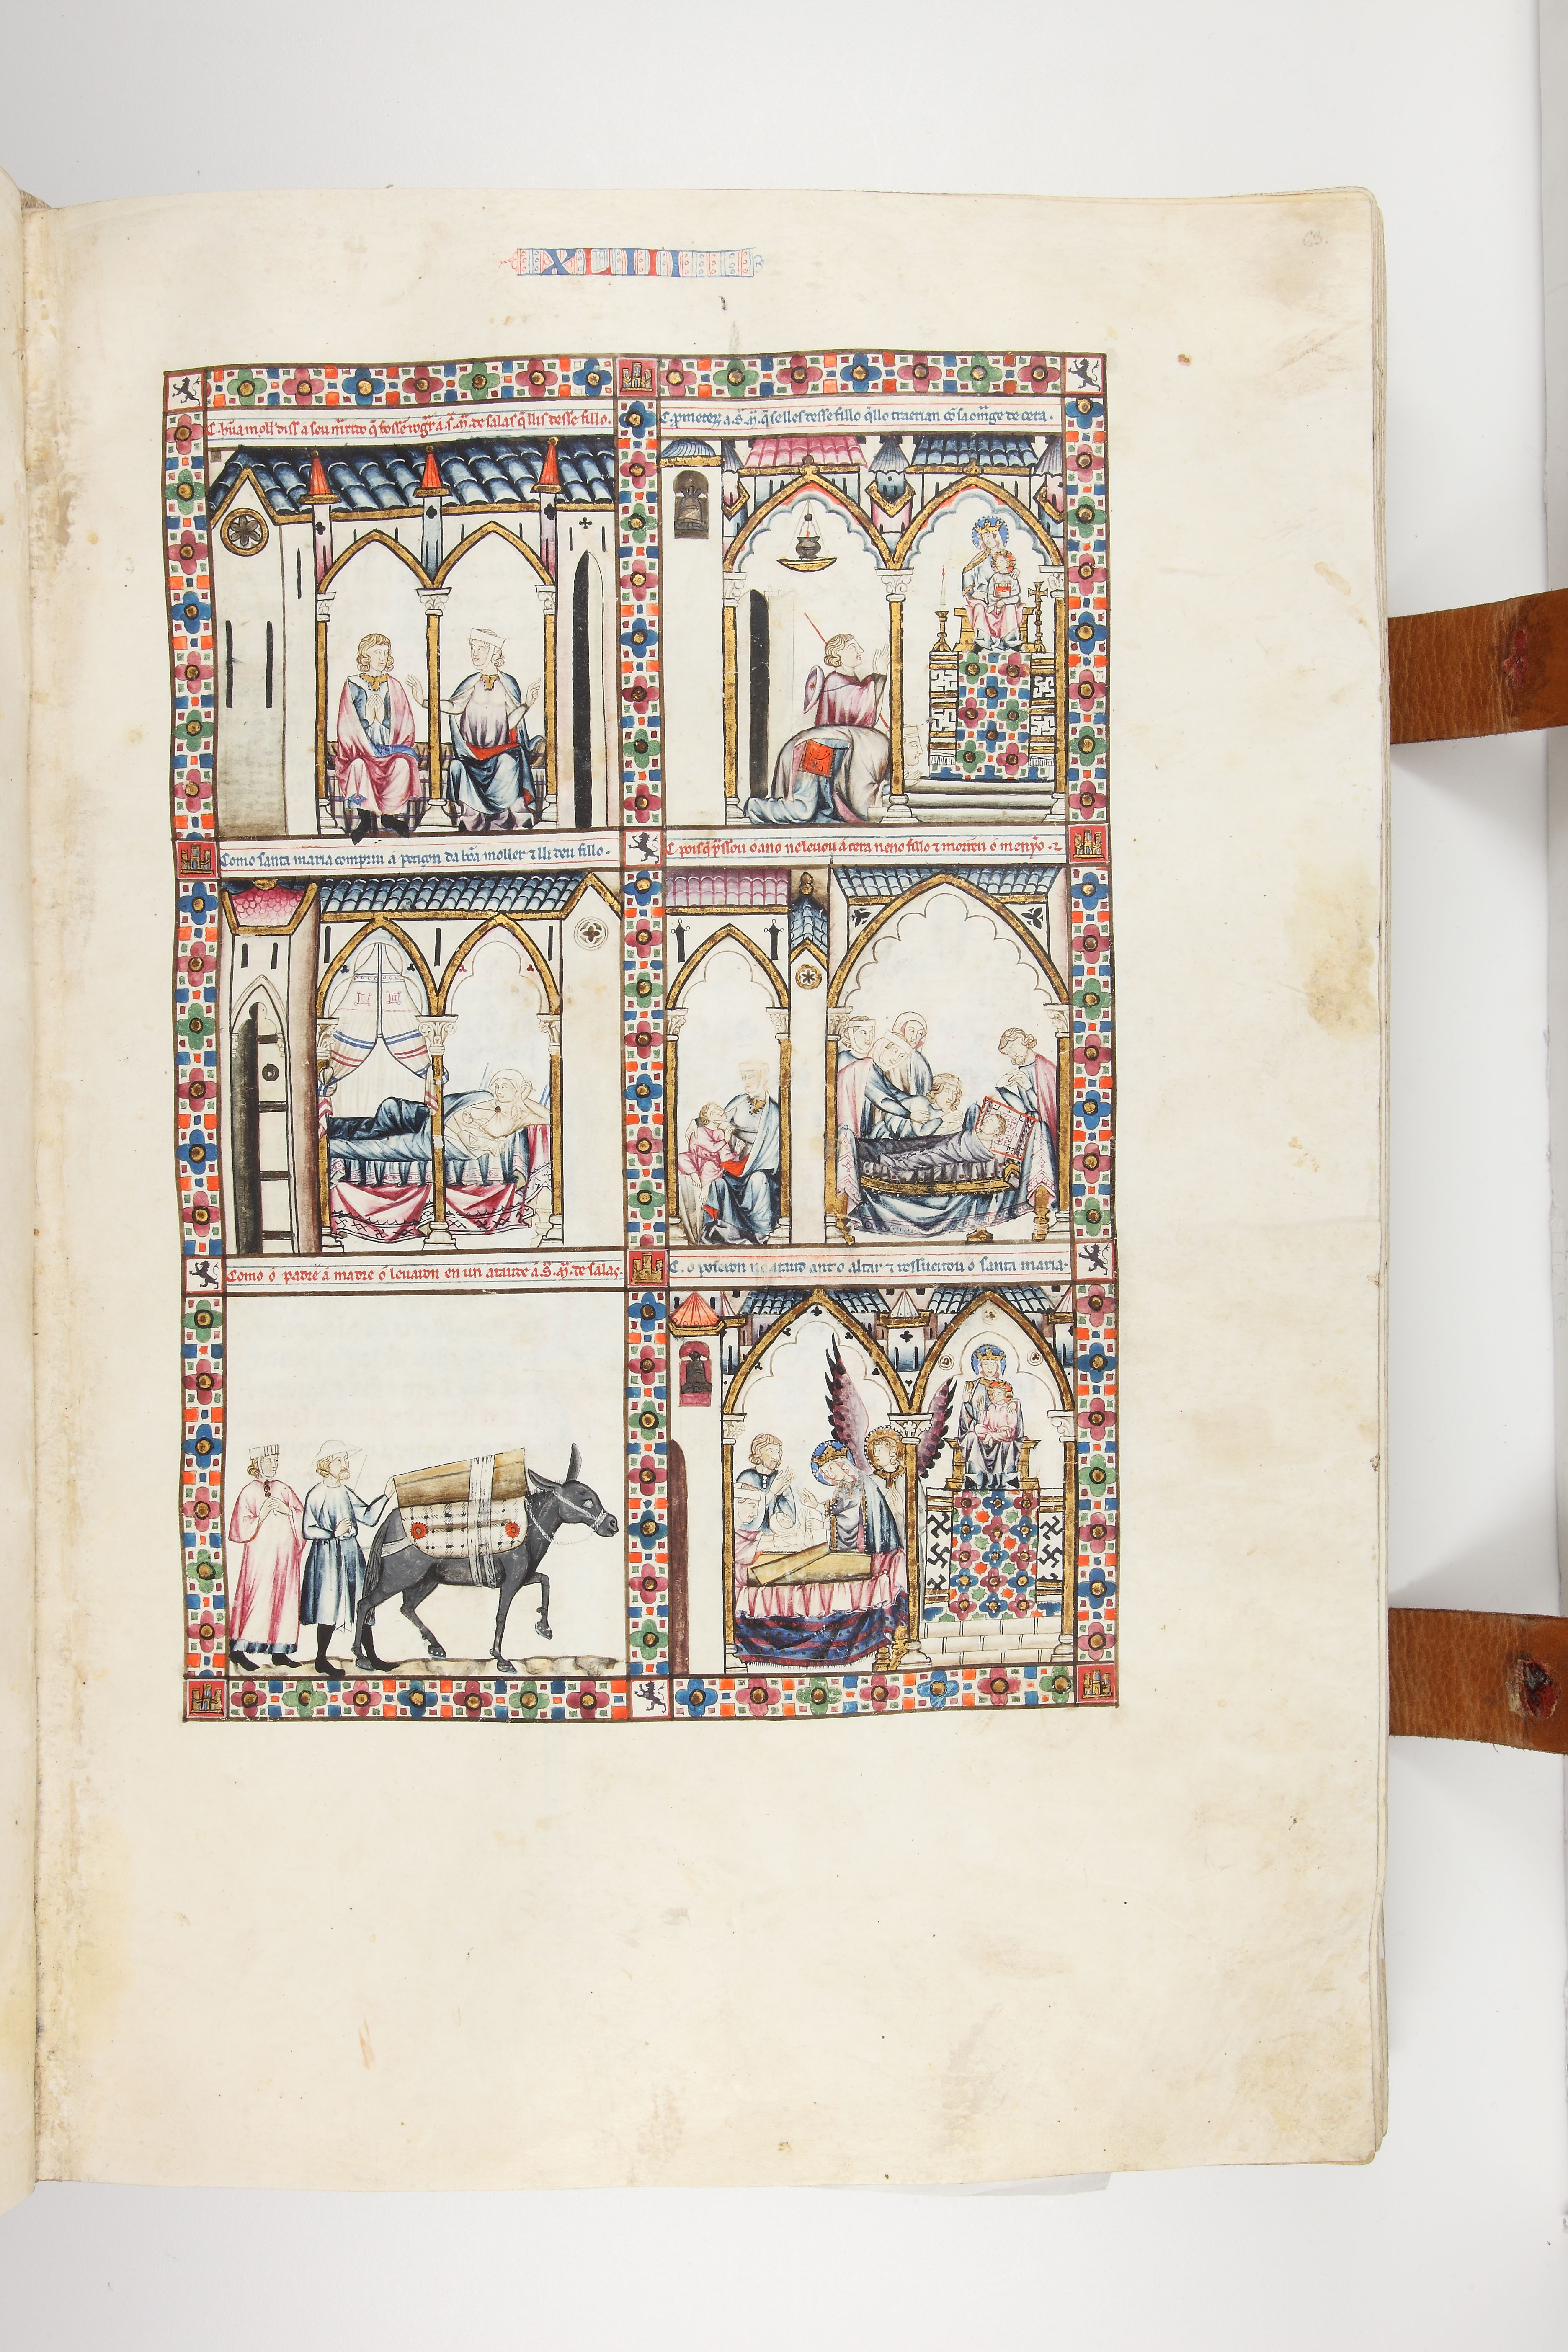 XLIII
63.
C. hũa moll' diss' a seu marido q̃ fossẽ rogar a .s. m̃. de salas q̃ llis desse fillo.
C. prometerõ a .S. m̃. q̃ se lles desse fillo q̃ llo traerian cõ sa omãge de cera.
Como santa maria compriu a petiçon da bõa moller ⁊ lli deu fillo.
C. pois q̃ passou o ano nõ levou a cera nen o fillo ⁊ morreu o menỹo.
Como o padre a madre o levaron en un ataude a .S. m̃. de salas.
C. o poseron no ataud ant o altar ⁊ ressucitou o santa maria.